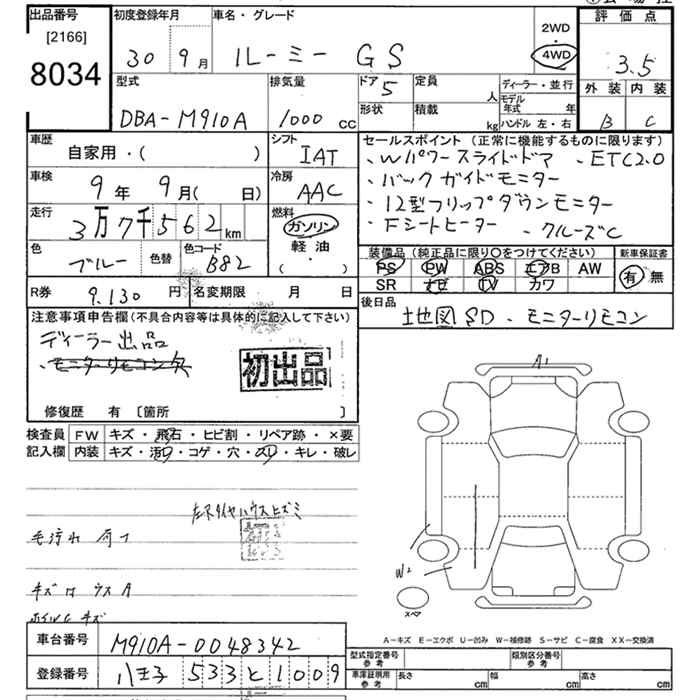 出品番号
[2166]
8034
初度登録年月
30年 9月
車名・グレード
ルーミー GS
2WD
4WD
評価点
3.5
外装 内装
B C
型式
DBA-M910A
排気量
1000 cc
ドア
5
形状
定員
人
積載
kg
ディーラー・並行
モデル年式 年
ハンドル 左・右
車歴
自家用・( )
シフト
IAT
車検
9年 9月( 日)
冷房
AAC
走行
3万7千562km
燃料
ガソリン
軽油
( ・ )
色
ブルー
色替
色コード
B82
セールスポイント (正常に機能するものに限ります)
・Wパワースライドドア ・ETC2.0
・バックガイドモニター
・12型フリップダウンモニター
・Fシートヒーター ・クルーズC
装備品 (純正品に限り〇をつけてください)
PS PW ABS エアB AW
SR ナビ TV カワ
新車保証書
有 無
後日品
地図SD・モニターリモコン
R券
9.130 円
名変期限 月 日
注意事項申告欄(不具合内容等は具体的に記入して下さい)
ディーラー出品
・モニターリモコン欠
初出品
修復歴 有 [箇所 ]
検査員記入欄
FW キズ・飛石・ヒビ割・リペア跡・×要
内装 キズ・汚れ・コゲ・穴・スリ・キレ・破レ
左フタイヤハウスヒズミ
毛汚れ
キズ
ホイルC キズ
A1
W2
スペア
A-キズ E-エクボ U-凹み W-補修跡 S-サビ C-腐食 XX-交換済
車台番号
M910A-0048342
登録番号
八王子 533 と 1009
型式指定番号
参考
類別区分番号
参考
車庫証明用
参考
長さ cm
幅 cm
高さ cm